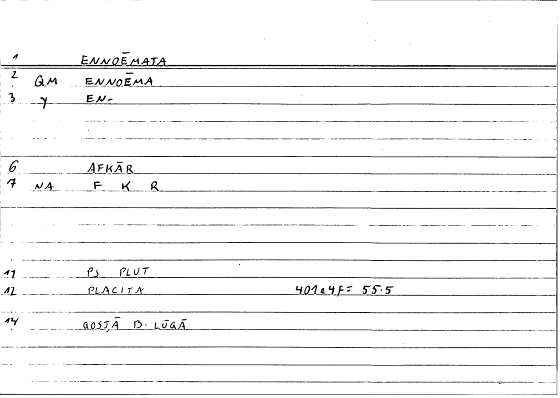 1 ENNOĒMATA
2 QM ENNOĒMA
3 y EN-
6 AFKĀR
7 NA F K R
11 PS PLUT
12 PLACITA 401a4f= 55.5
14 QOSṬĀ B. LŪQĀ